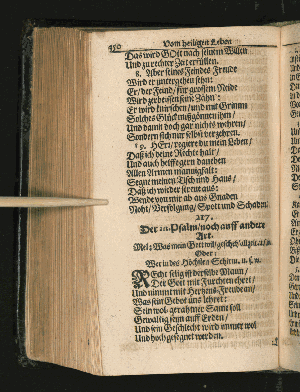 350 Vom heiligen Leben
Das wird GOtt nach seinem Willen
Und zu rechter Zeit erfüllen.
8. Aber seines Feindes Freude
Wird er untergehen sehn:
Er/ der Feind/ für grossem Neide
Wird zerbeissen seine Zähn:
Er wird knirschen/ und mit Grimm
Solches Glück mißgönnen ihm/
Und damit doch gar nichts wehren/
Sondern sich nur selbst verzehren.
9. HErr/ regiere du mein Leben/
Daß ich deine Rechte halt/
Und auch helffe gern daneben
Allen Armen
Segne meinen Tisch und Haus/
Daß ich wieder
Wende von mir ab aus Gnaden
Noht/ Verfolgung/ Spott und Schaden.
217.
Der 112. Psalm/ noch auff andere
Art.
Mel: Was mein Gott will/ gescheh allzeit/
Oder:
Wer in des Höchsten Schirm. u. s. w.
REcht selig ist derselbe Mann/
Der Gott mit Furchten ehret/
Und nimmt mit Hertzens-Freuden an/
Was sein Gebot uns lehret:
Sein wol-gerahtner Same soll
Gewaltig seyn auff Erden/
Und sein Geschlecht wird immer wol
Und hoch gesegnet werden.